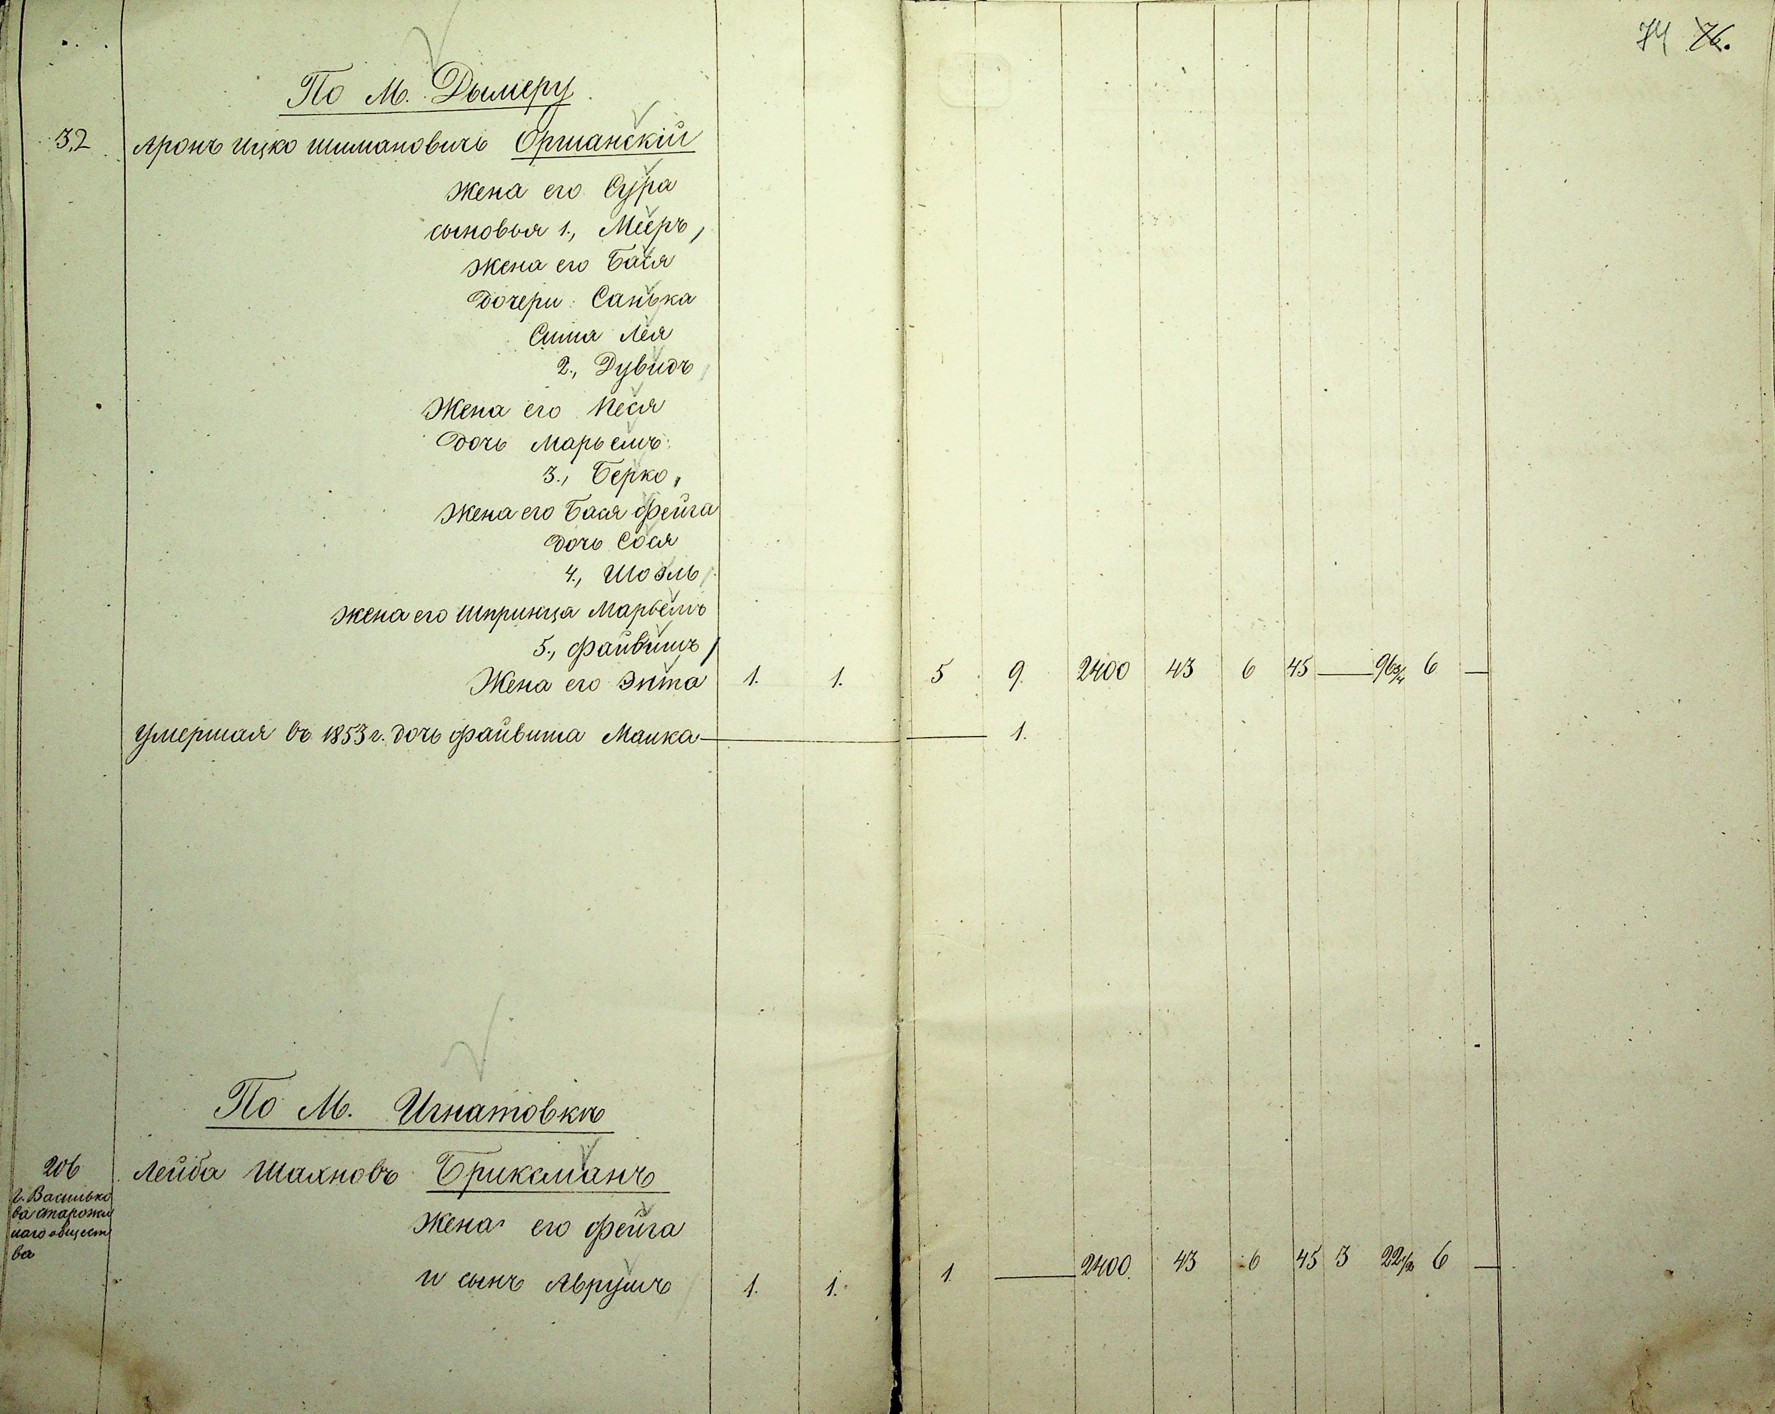 74 76.
По М. Дымеру
32 Аронъ Ицко Шимановичъ Оршанскій
жена его Сура
сыновья 1., Мееръ,
жена его Бася
дочери Санька
Сима Лея
2., Дувидъ
Жена его Песя
дочь Марьемъ
3., Берко,
жена его Бася Фейга
дочь Сося
4., Шоэль
жена его Шпринца Марьемъ
5., Файвишъ,
Жена его Энта 1. 1. 5 9. 2400 43 6 45 — 96 3/4 6 —
Умершая въ 1853 г. дочь Файвиша Малка — — 1.
По М. Игнатовкѣ
206 Лейба Шахновъ Бриксманъ
г. Василько
ва старожи
лаго общест
ва
Жена его Фейга
и сынъ Аврумъ 1. 1. 1. — 2400. 43 6 45 3 22 1/2 6 —